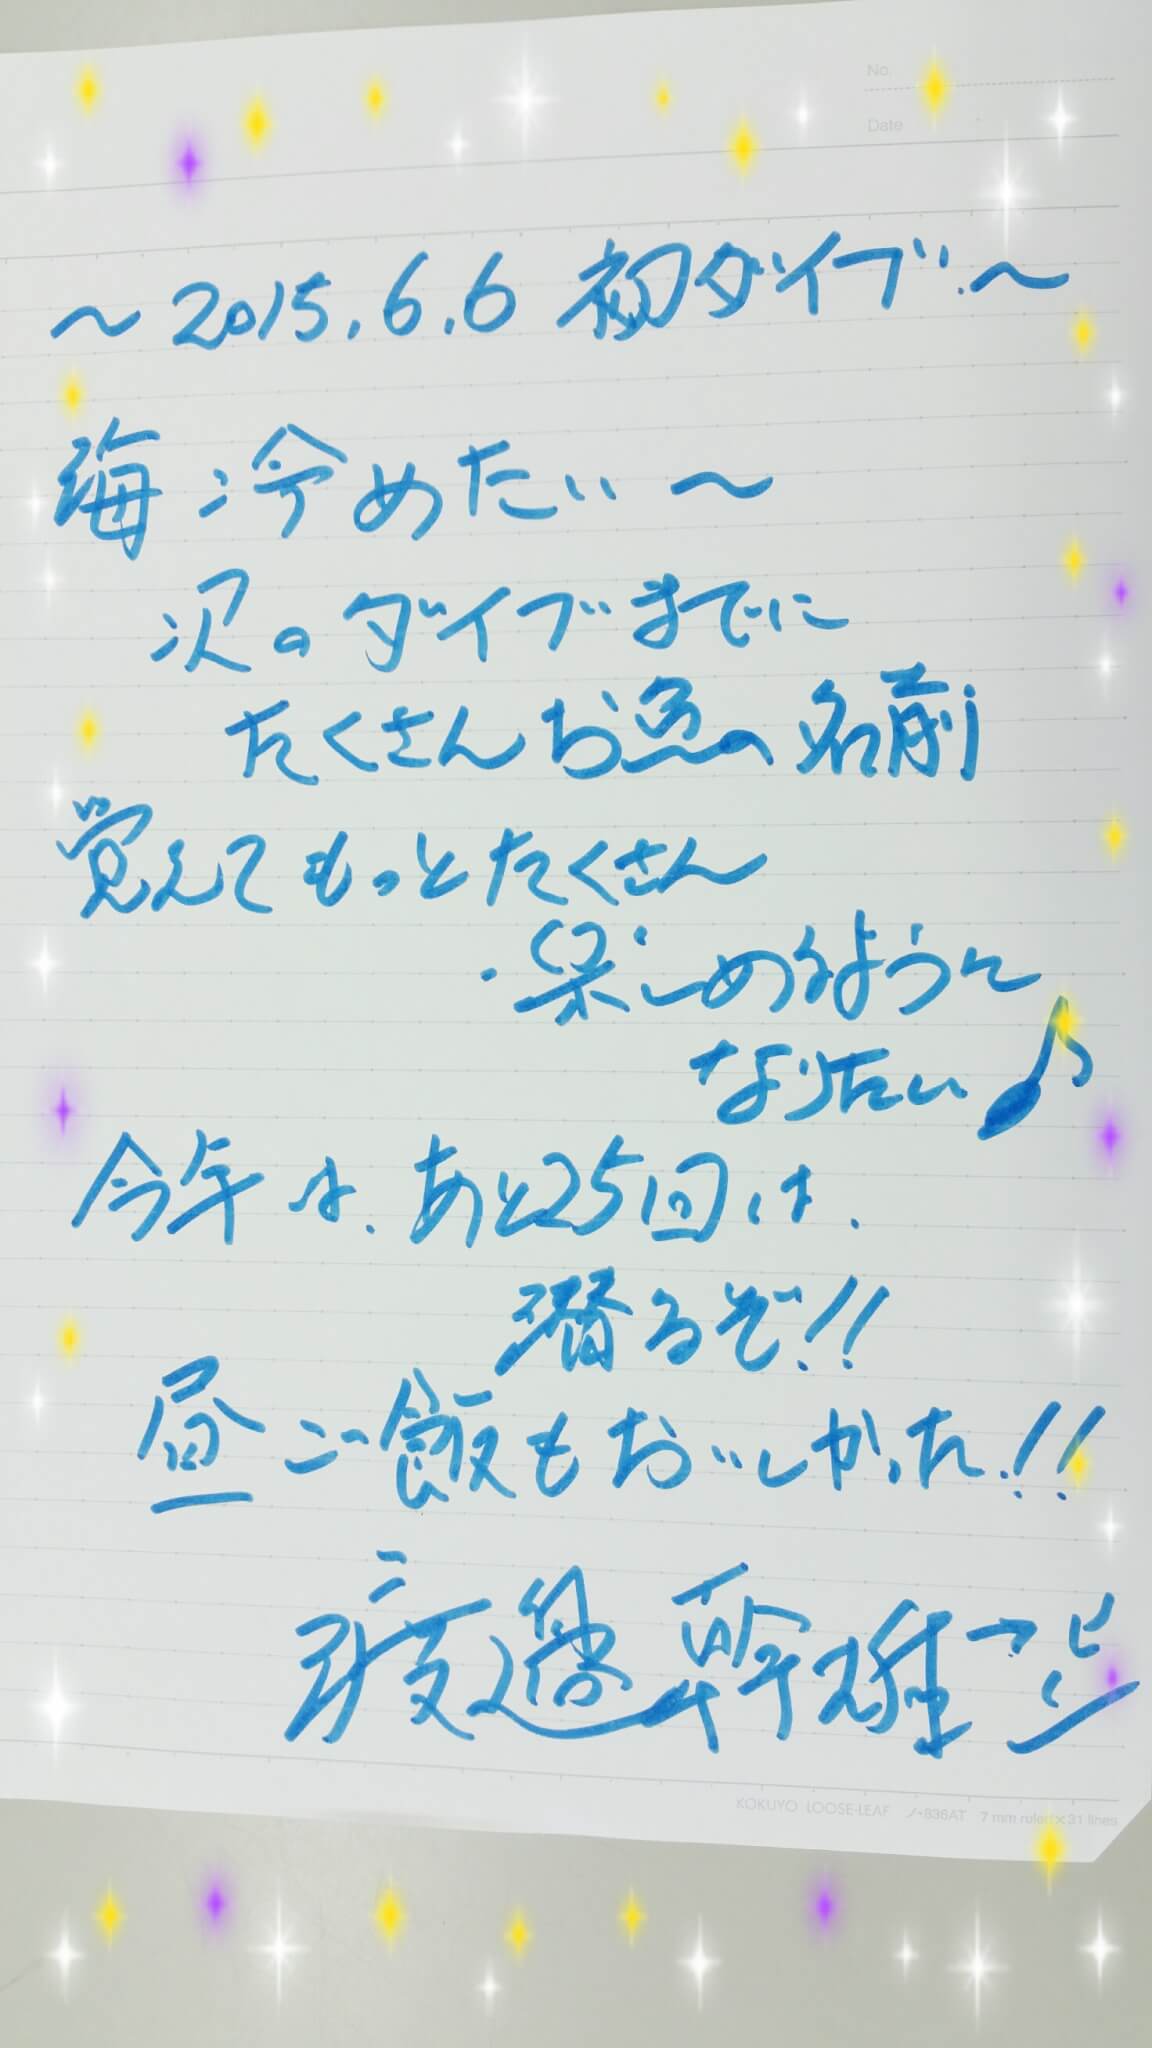 No.
Date
～2015.6.6 初ダイブ～
海冷めたい～
次のダイブまでに
たくさんお魚の名前
覚えてもっとたくさん
楽しめるように
なりたい♪
今年は、あと25回は、
潜るぞ!!
昼ご飯もおいしかった!!
渡邉 幹雄
KOKUYO LOOSE-LEAF ノ-836AT 7 mm ruled×31 lines